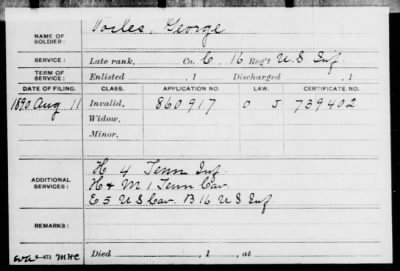 NAME OF SOLDIER: Voiles, George
SERVICE: Late rank, Co. C, 16 Reg't U.S. Inf.
TERM OF SERVICE: Enlisted , 1 Discharged , 1
DATE OF FILING. CLASS. APPLICATION NO. LAW. CERTIFICATE NO.
1890 Aug 11 Invalid, 860917 O J 739402
Widow,
Minor,
ADDITIONAL SERVICES: H 4 Tenn Inf.
H & M 1 Tenn Cav.
E 5 U S Cav. B 16 U S Inf.
REMARKS:
MHC Died , 1 , at